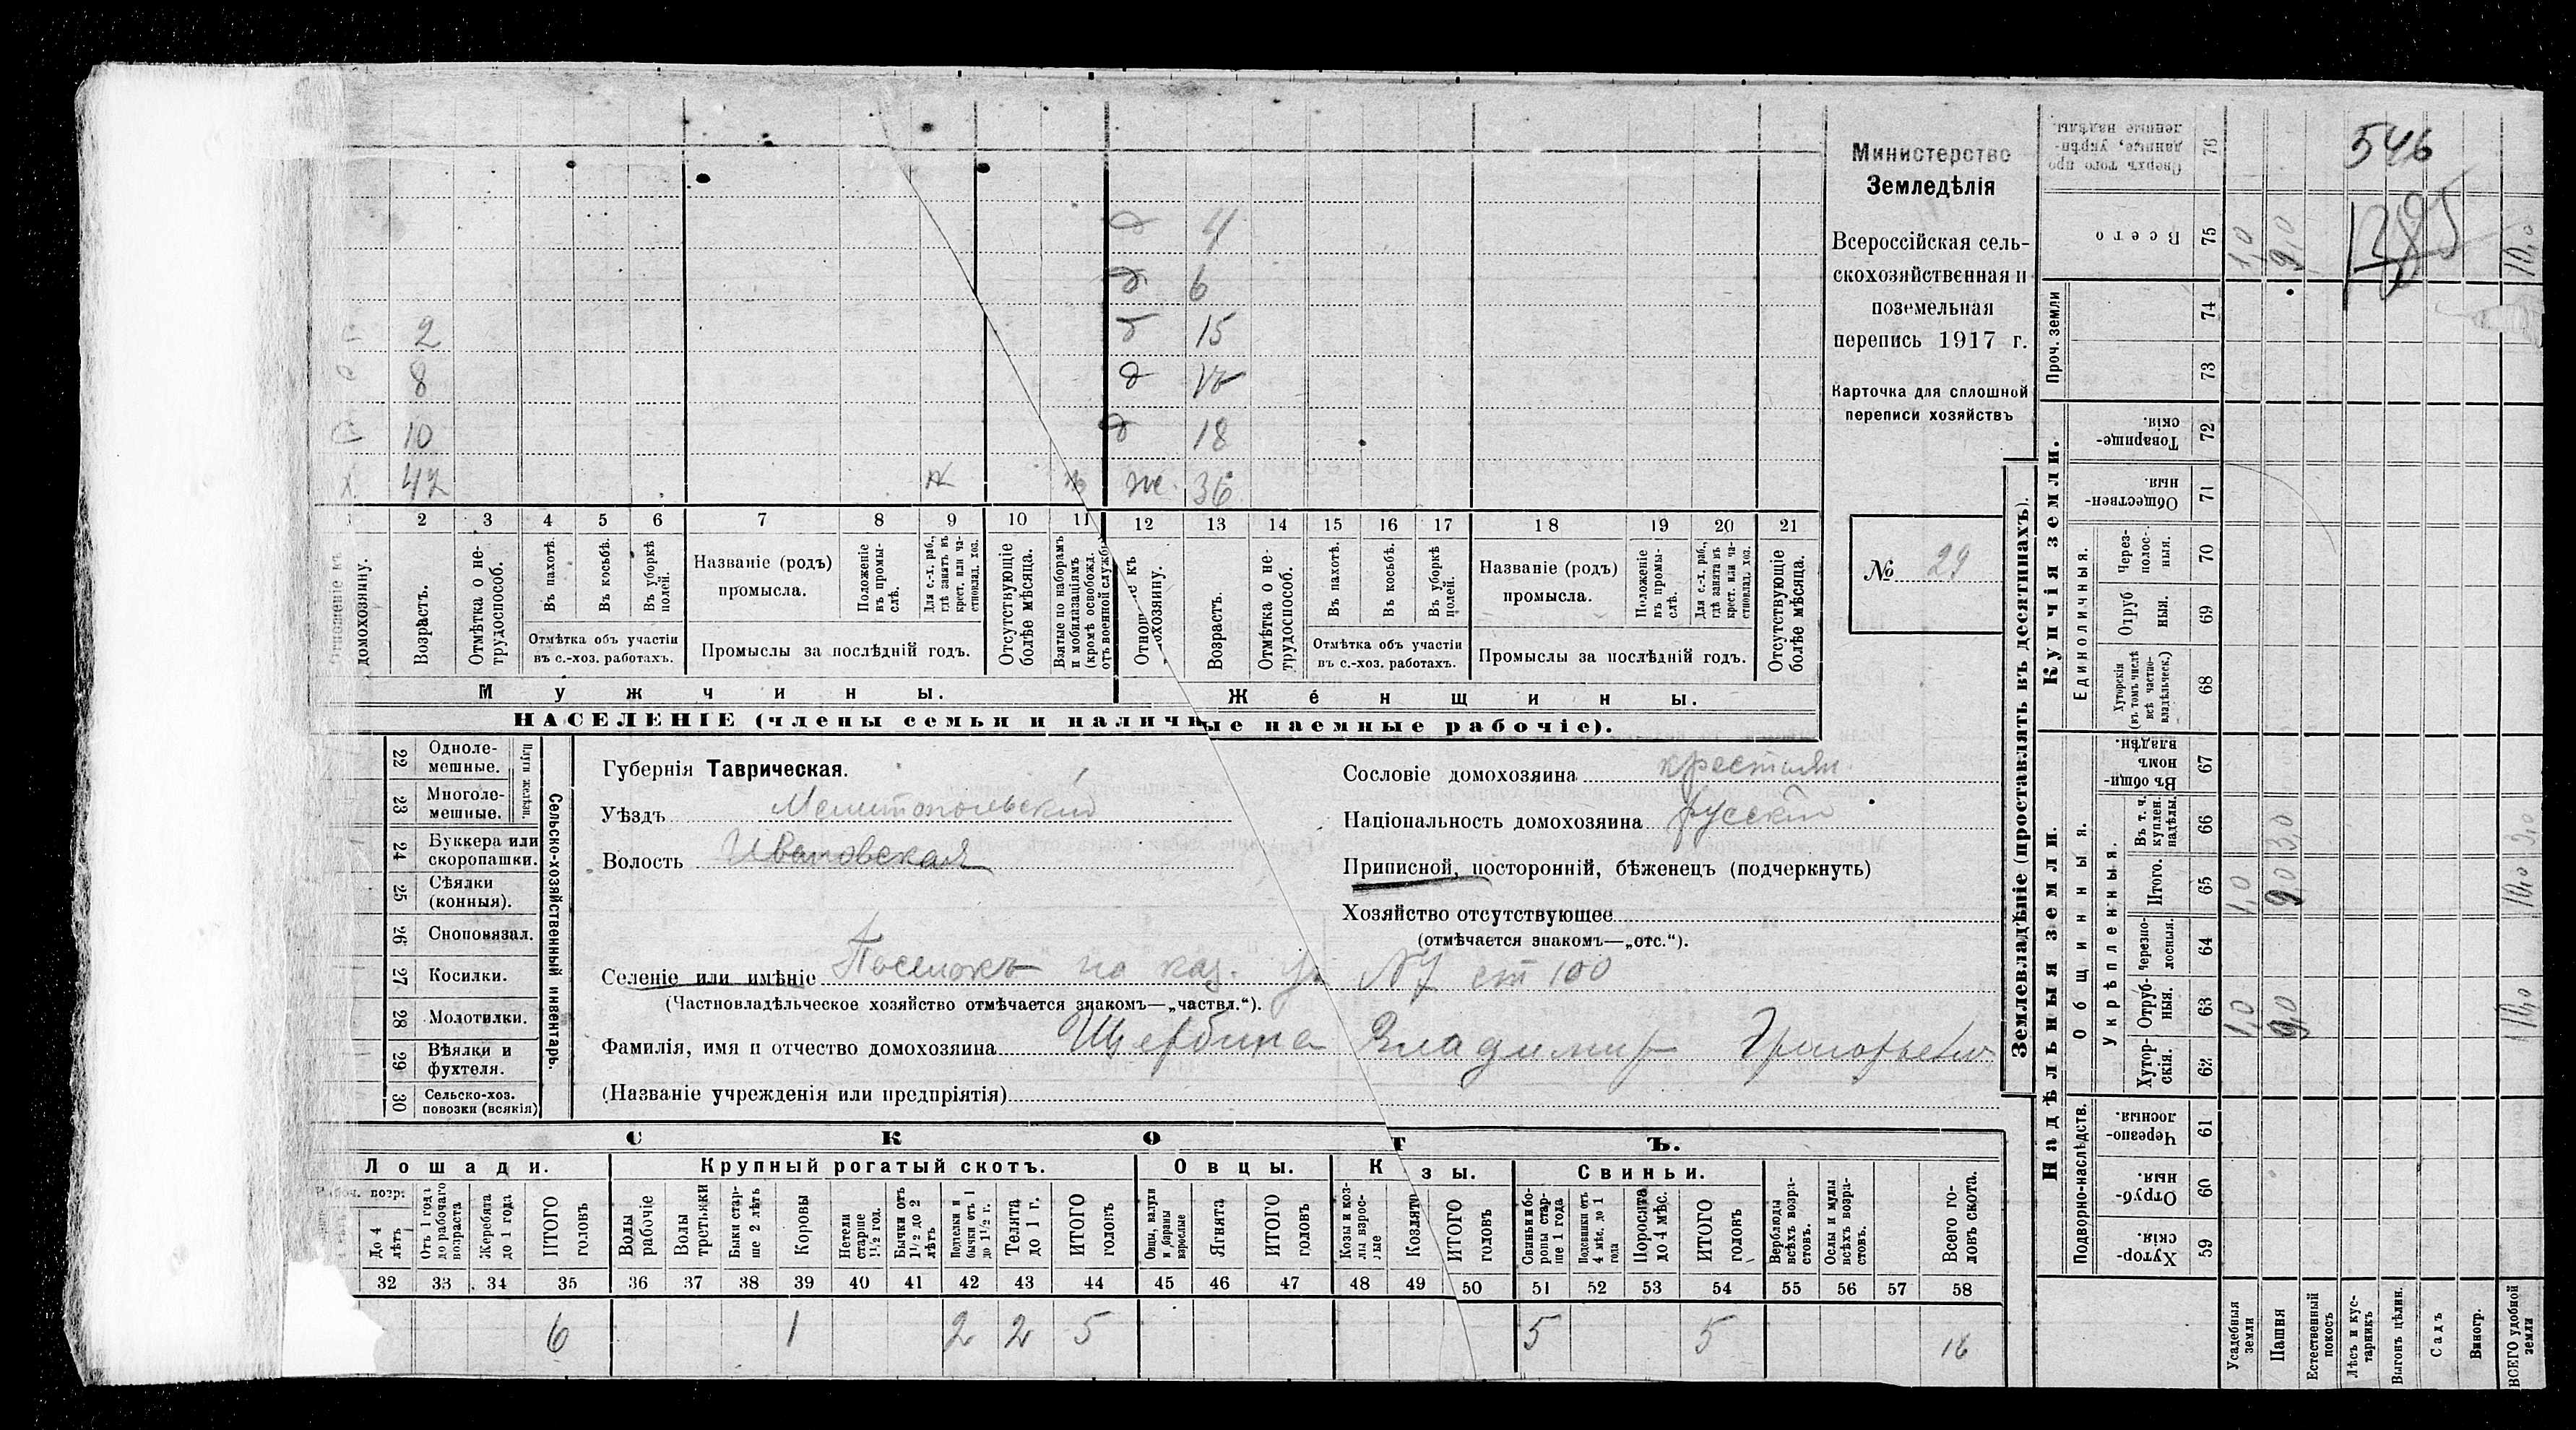 546
1285
Министерство
Земледѣлія
Всероссійская сель-
скохозяйственная и
поземельная
перепись 1917 г.
Карточка для сплошной
переписи хозяйствъ
№ 29
д 4
д 6
2 д 15
8 д
10 д 18
42 ж. 36
1 2 3 4 5 6 7 8 9 10 11 12 13 14 15 16 17 18 19 20 21
домохозяину.
Возрастъ.
Отмѣтка о не-
трудоспособ.
Въ пахотѣ.
Въ косьбѣ.
Въ уборкѣ
полей.
Отмѣтка объ участіи
въ с.-хоз. работахъ.
Названіе (родъ)
промысла.
Положеніе
въ промы-
слѣ.
Для с.-х. раб.,
гдѣ занятъ въ
крест. или ча-
стновлад. хоз.
Промыслы за послѣдній годъ.
Отсутствующіе
болѣе мѣсяца.
Взятые по наборамъ
и мобилизаціямъ
(кромѣ освобожд.
отъ военной служб
Возрастъ.
Отмѣтка о не-
трудоспособ.
Въ пахотѣ.
Въ косьбѣ.
Въ уборкѣ
полей.
Отмѣтка объ участіи
въ с.-хоз. работахъ.
Названіе (родъ)
промысла.
Положеніе
въ промы-
слѣ.
Для с.-х. раб.,
гдѣ занята въ
крест. или ча-
стновлад. хоз.
Промыслы за послѣдній годъ.
Отсутствующіе
болѣе мѣсяца.
Мужчины.
Женщины.
НАСЕЛЕНІЕ (члены семьи и наличные наемные рабочіе).
Сельско-хозяйственный инвентарь.
Плуги желѣзн.
22 Одноле-
мешные.
23 Многоле-
мешные.
24 Буккера или
скоропашки.
25 Сѣялки
(конныя).
26 Сноповязал.
27 Косилки.
28 Молотилки.
29 Вѣялки и
фухтеля.
30 Сельско-хоз.
повозки (всякія)
Губернія Таврическая.
Уѣздъ Мелитопольскій
Волость Ивановская
Селеніе или имѣніе Поселокъ на каз. уч. №7 ст 100
(Частновладѣльческое хозяйство отмѣчается знакомъ—„частвл.“).
Фамилія, имя и отчество домохозяина Щербина Владимир Григорьевич
(Названіе учрежденія или предпріятія)
Сословіе домохозяина крестьян.
Національность домохозяина русскій
Приписной, посторонній, бѣженецъ (подчеркнуть)
Хозяйство отсутствующее
(отмѣчается знакомъ—„отс.“).
СКОТЪ.
Лошади.
Крупный рогатый скотъ.
Овцы.
Козы.
Свиньи.
До 4
лѣтъ
Отъ 1 года
до рабочаго
возраста
Жеребята
до 1 года
ИТОГО
головъ
Волы
рабочіе
Волы
третьяки
Быки стар-
ше 2 лѣтъ
Коровы
Нетели
старше
1½ год.
Бычки отъ
1½ до 2
лѣтъ
Подтелки и
бычки отъ 1
до 1½ г.
Телята
до 1 г.
ИТОГО
головъ
Овцы, валухи
и бараны
взрослые
Ягнята
ИТОГО
головъ
Козы и коз-
лы взрос-
лые
Козлята
ИТОГО
головъ
Свиньи и бо-
ровы стар-
ше 1 года
Подсвинки отъ
4 мѣс. до 1
года
Поросята
до 4 мѣс.
ИТОГО
головъ
Верблюды
всѣхъ возра-
стовъ.
Ослы и мулы
всѣхъ возра-
стовъ.
Всего го-
ловъ скота.
32 33 34 35 36 37 38 39 40 41 42 43 44 45 46 47 48 49 50 51 52 53 54 55 56 57 58
6 1 2 2 5 5 5 16
Землевладѣніе (проставлять въ десятинахъ).
Надѣльныя земли.
Купчія земли.
Проч. земли
Подворно-наслѣдств.
Общинныя.
Укрѣпленныя.
Единоличныя.
Сверхъ того про
данные, укрѣп-
ленные надѣлы. 76
Всего 75 1,0 9,0 10,0
74
73
Товарище-
скія. 72
Обществен-
ныя. 71
Через-
полос-
ныя. 70
Отруб
ныя. 69
Хуторскія
(въ томъ числѣ
всѣ частно-
владѣльческ.) 68
Въ общин-
номъ
владѣн. 67
Въ т. ч.
куплен.
надѣлы. 66 3,0 3,0
Итого. 65 1,0 9,0 10,0
Черезпо-
лосныя. 64
Отруб-
ныя. 63 1,0 9,0 10,0
Хутор-
скія. 62
Черезпо-
лосныя. 61
Отруб-
ныя. 60
Хутор-
скія. 59
Усадебныя
земли
Пашня
Естественный
покосъ
Лѣсъ и кус-
тарникъ
Выгонъ цѣлин.
Садъ
Виногр.
ВСЕГО удобной
земли